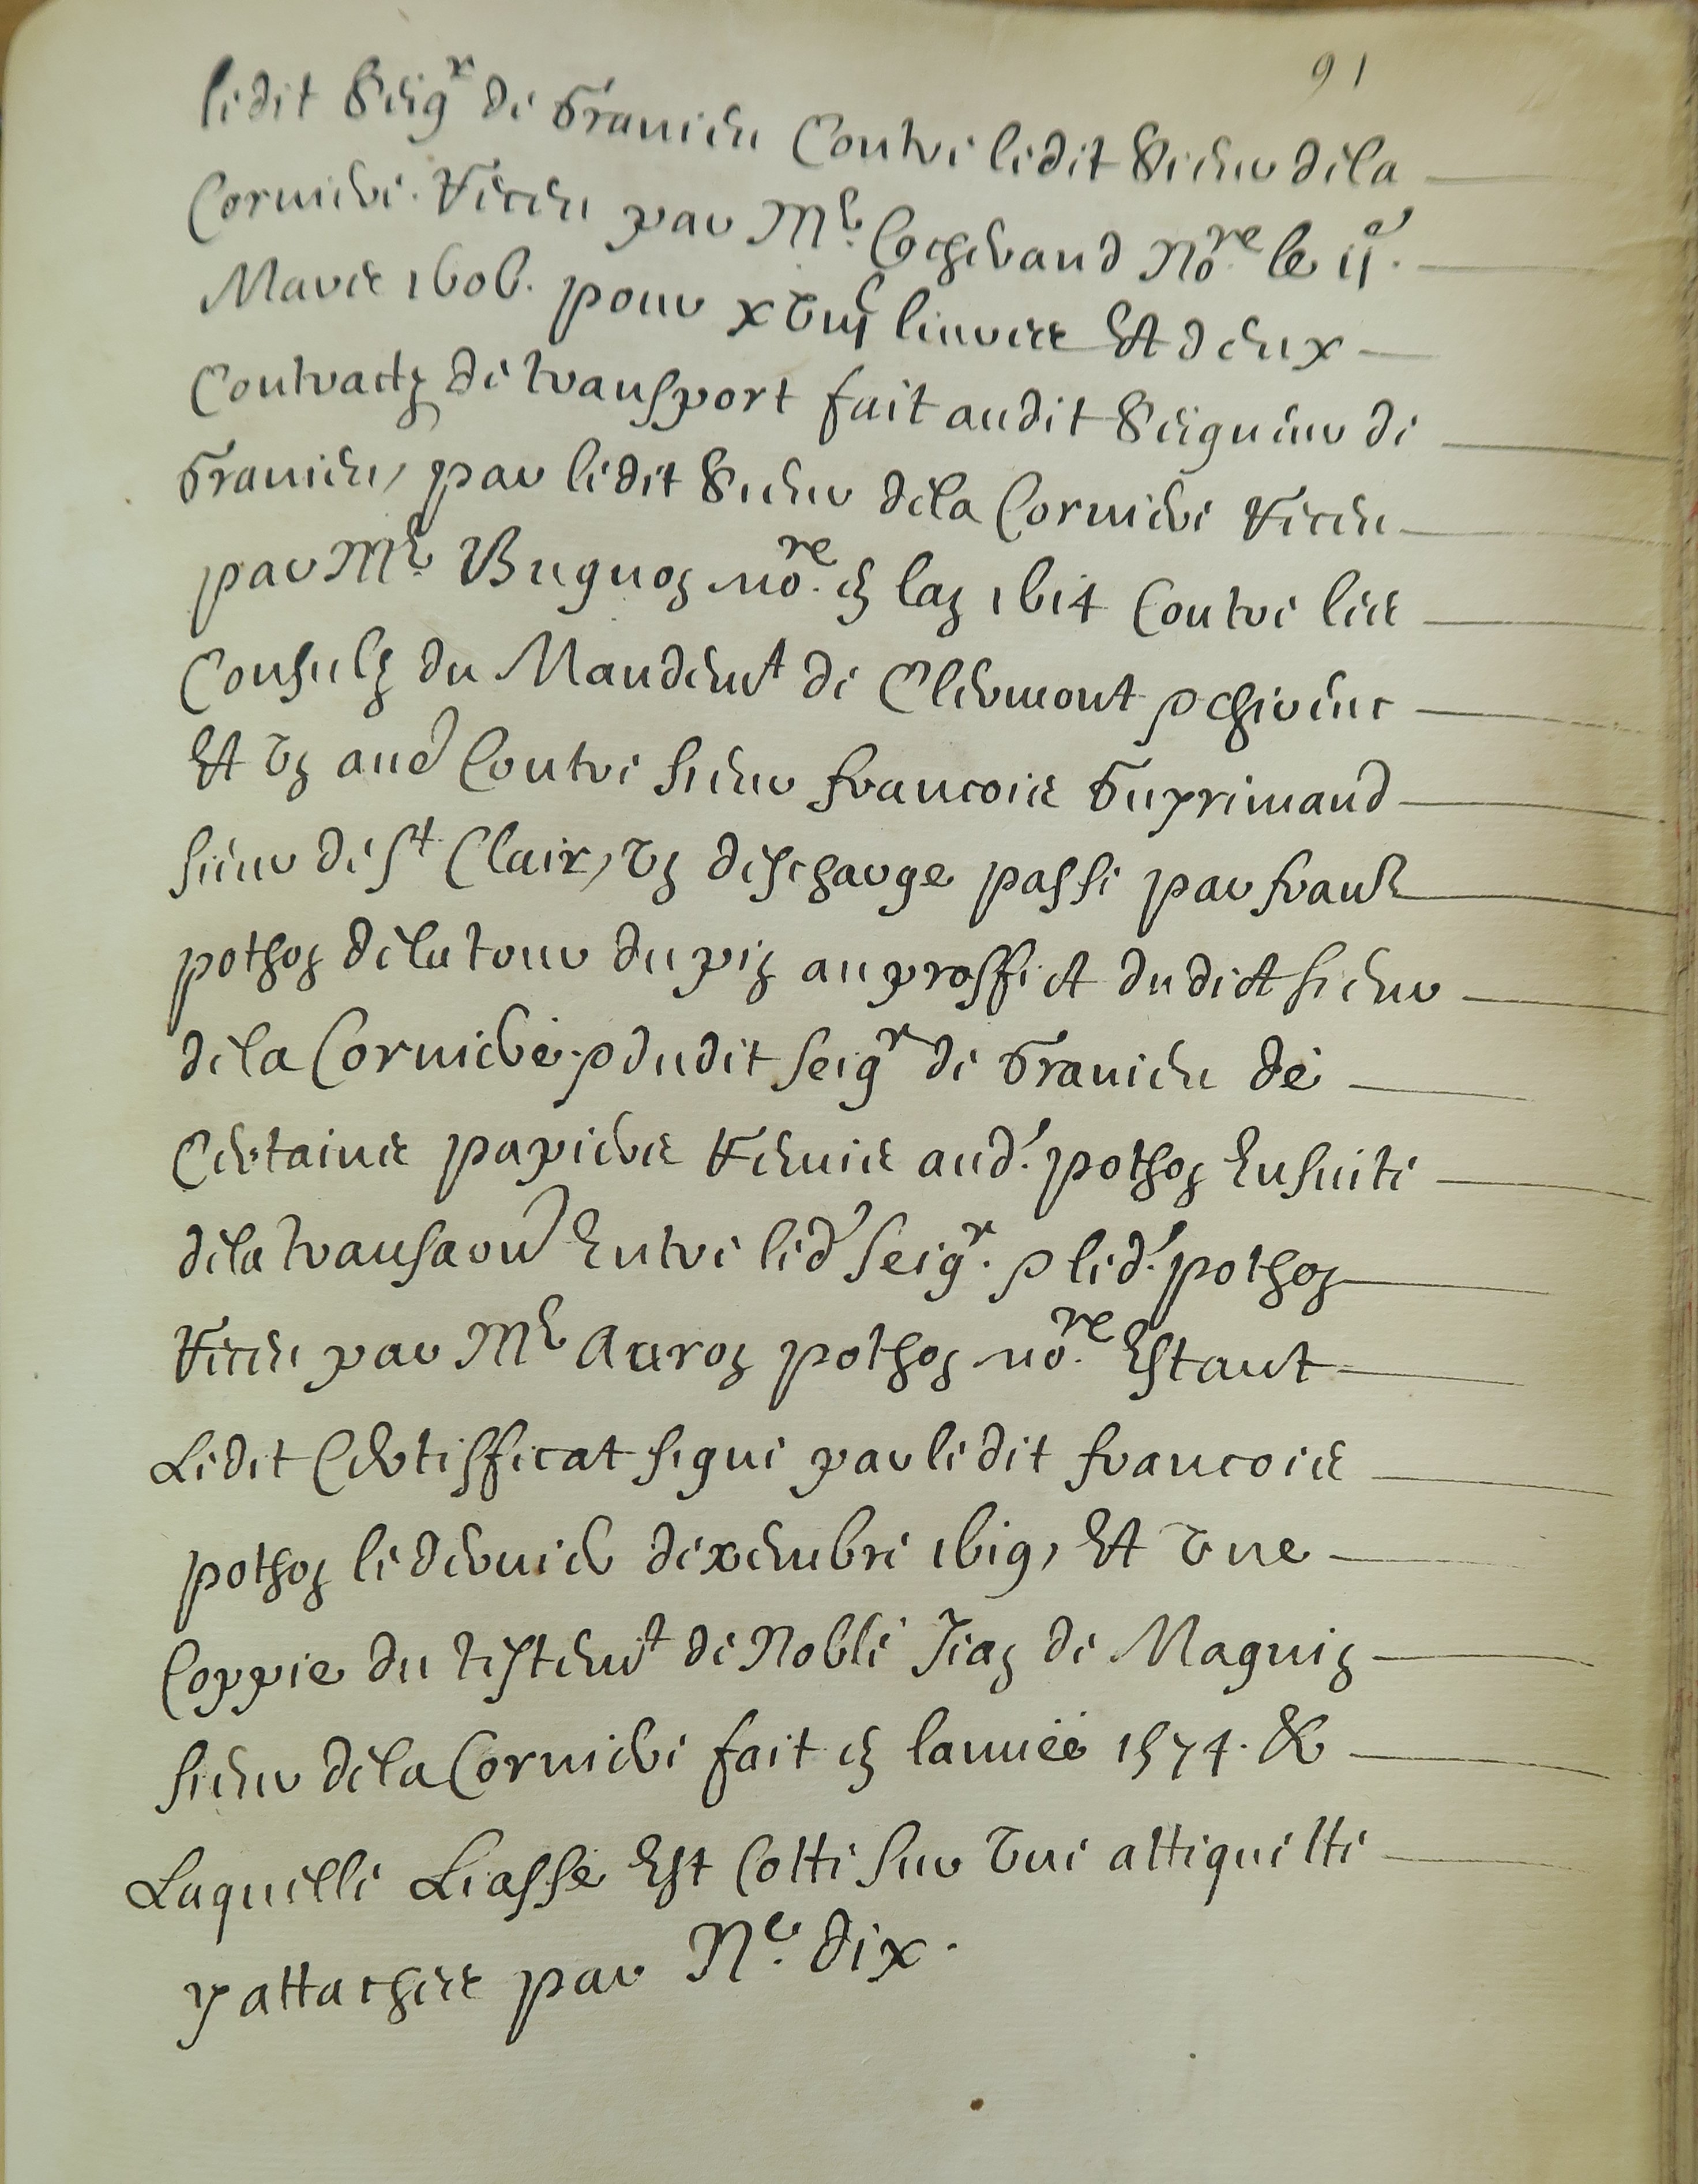 91
ledit Seigr de Granieu Contre ledit Sieur dela
Corniere. Receu par Me. Cocherand Nore le ije.
Mars 1606. pour xviijc liuures Et deux
Contractz de transport fait audit Seigneur de
Granieu, par ledit Sieur dela Corniere Receu
par Me. Bugnoz nore. ez laz 1614 Contre les
Consulz du Mandemt de Clermont & chirens
Et vz aue Contre sieur francois Guprimand
sieur de st Clair, vz descharge passe par franc
pothoz dela tour du piz au proffict dudict sieur
dela Corniere & dudit seigr de Granieu de
Certains papiers Remis aud. pothoz Ensuite
dela transaon Entre led seigr. & led. pothoz
Receu par Me Auroz pothoz nore. Estant
Ledit Certifficat signe par ledit francois
pothoz le dernier dexembre 1619, Et vne
Coppie du testemt de Noble Jeaz de Magniz
sieur dela Corniere fait ez lannée 1574. &
Laquelle Liasse Est Cotte sur vne attiquette
y attachee par No. dix.